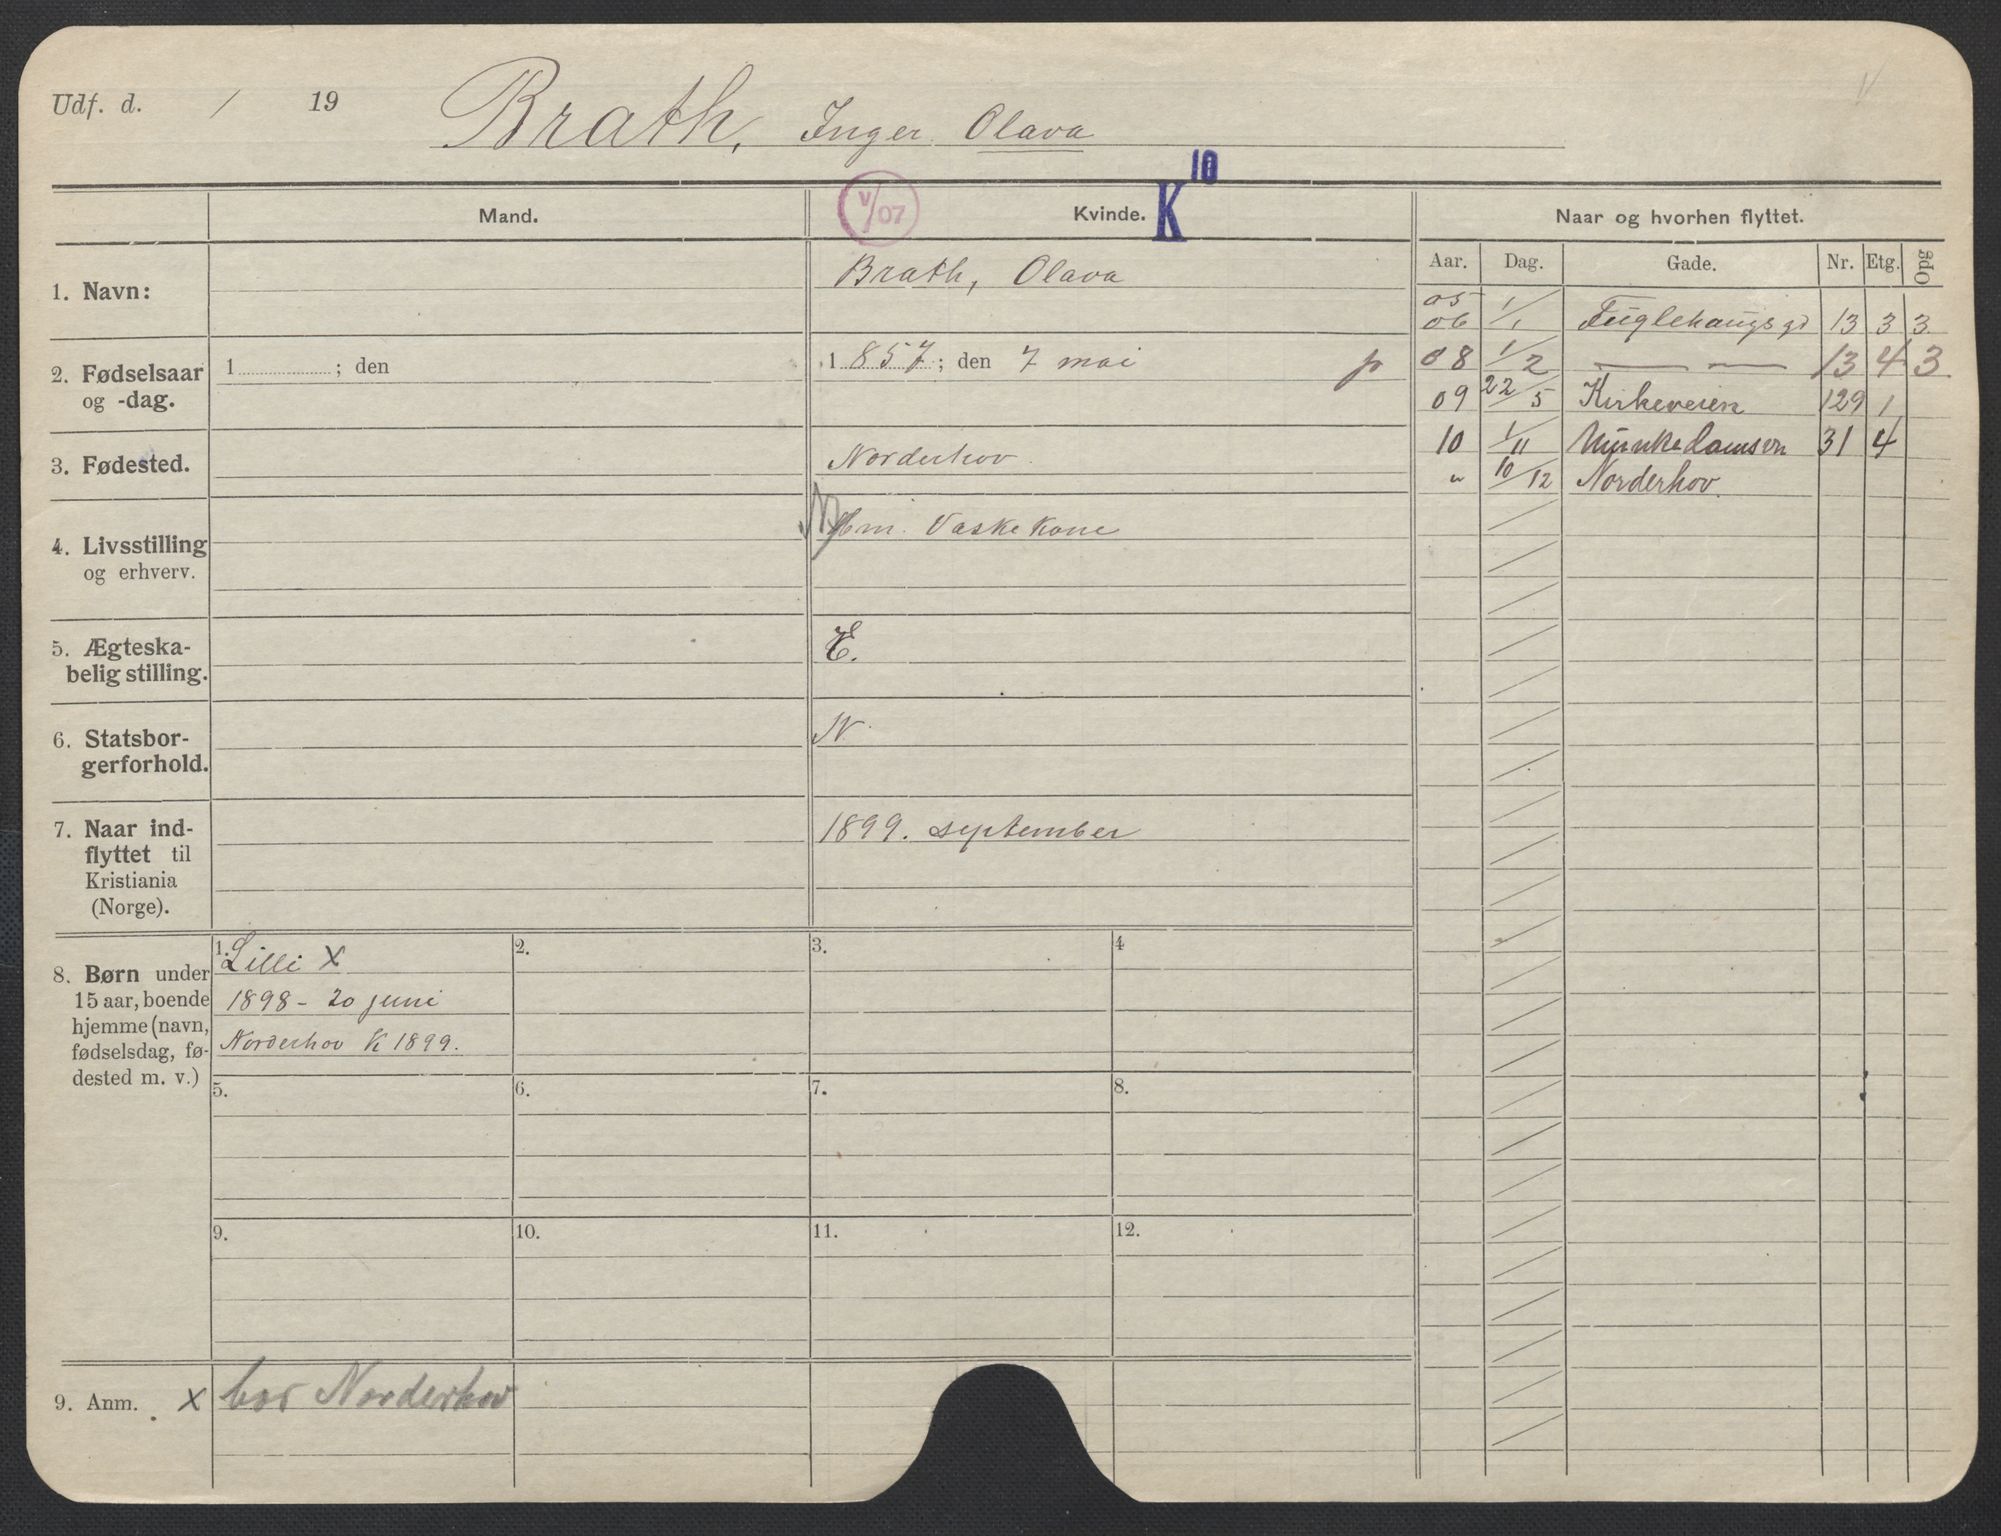 Udf. d. / 19 Brath, Inger Olava
Mand.
V/07
Kvinde. K 10
Naar og hvorhen flyttet.
Aar. Dag. Gade. Nr. Etg. Opg
1. Navn:
Brath, Olava
2. Fødselsaar
og -dag.
1 ; den
1857; den 7 mai
3. Fødested.
Norderhov
4. Livsstilling
og erhverv.
Vaskekone
5. Ægteska-
belig stilling.
E.
6. Statsbor-
gerforhold.
N.
7. Naar ind-
flyttet til
Kristiania
(Norge).
1899. september
05
06 1/1 Fuglehaugsgd 13 3 3
08 1/2 — — 13 4 3
09 22/5 Kirkeveien 129 1
10 1/11 Munkedamsvn 31 4
" 10/12 Norderhov.
8. Børn under
15 aar, boende
hjemme (navn,
fødselsdag, fø-
dested m. v.)
1. Lilli X
1898 - 20 juni
Norderhov K 1899.
2.
3.
4
5.
6.
7.
8.
9.
10.
11.
12.
9. Anm. X bor Norderhov